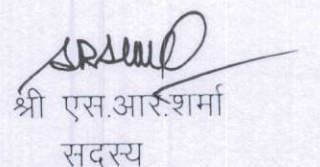 श्री एस.आर.शर्मा
सदस्य